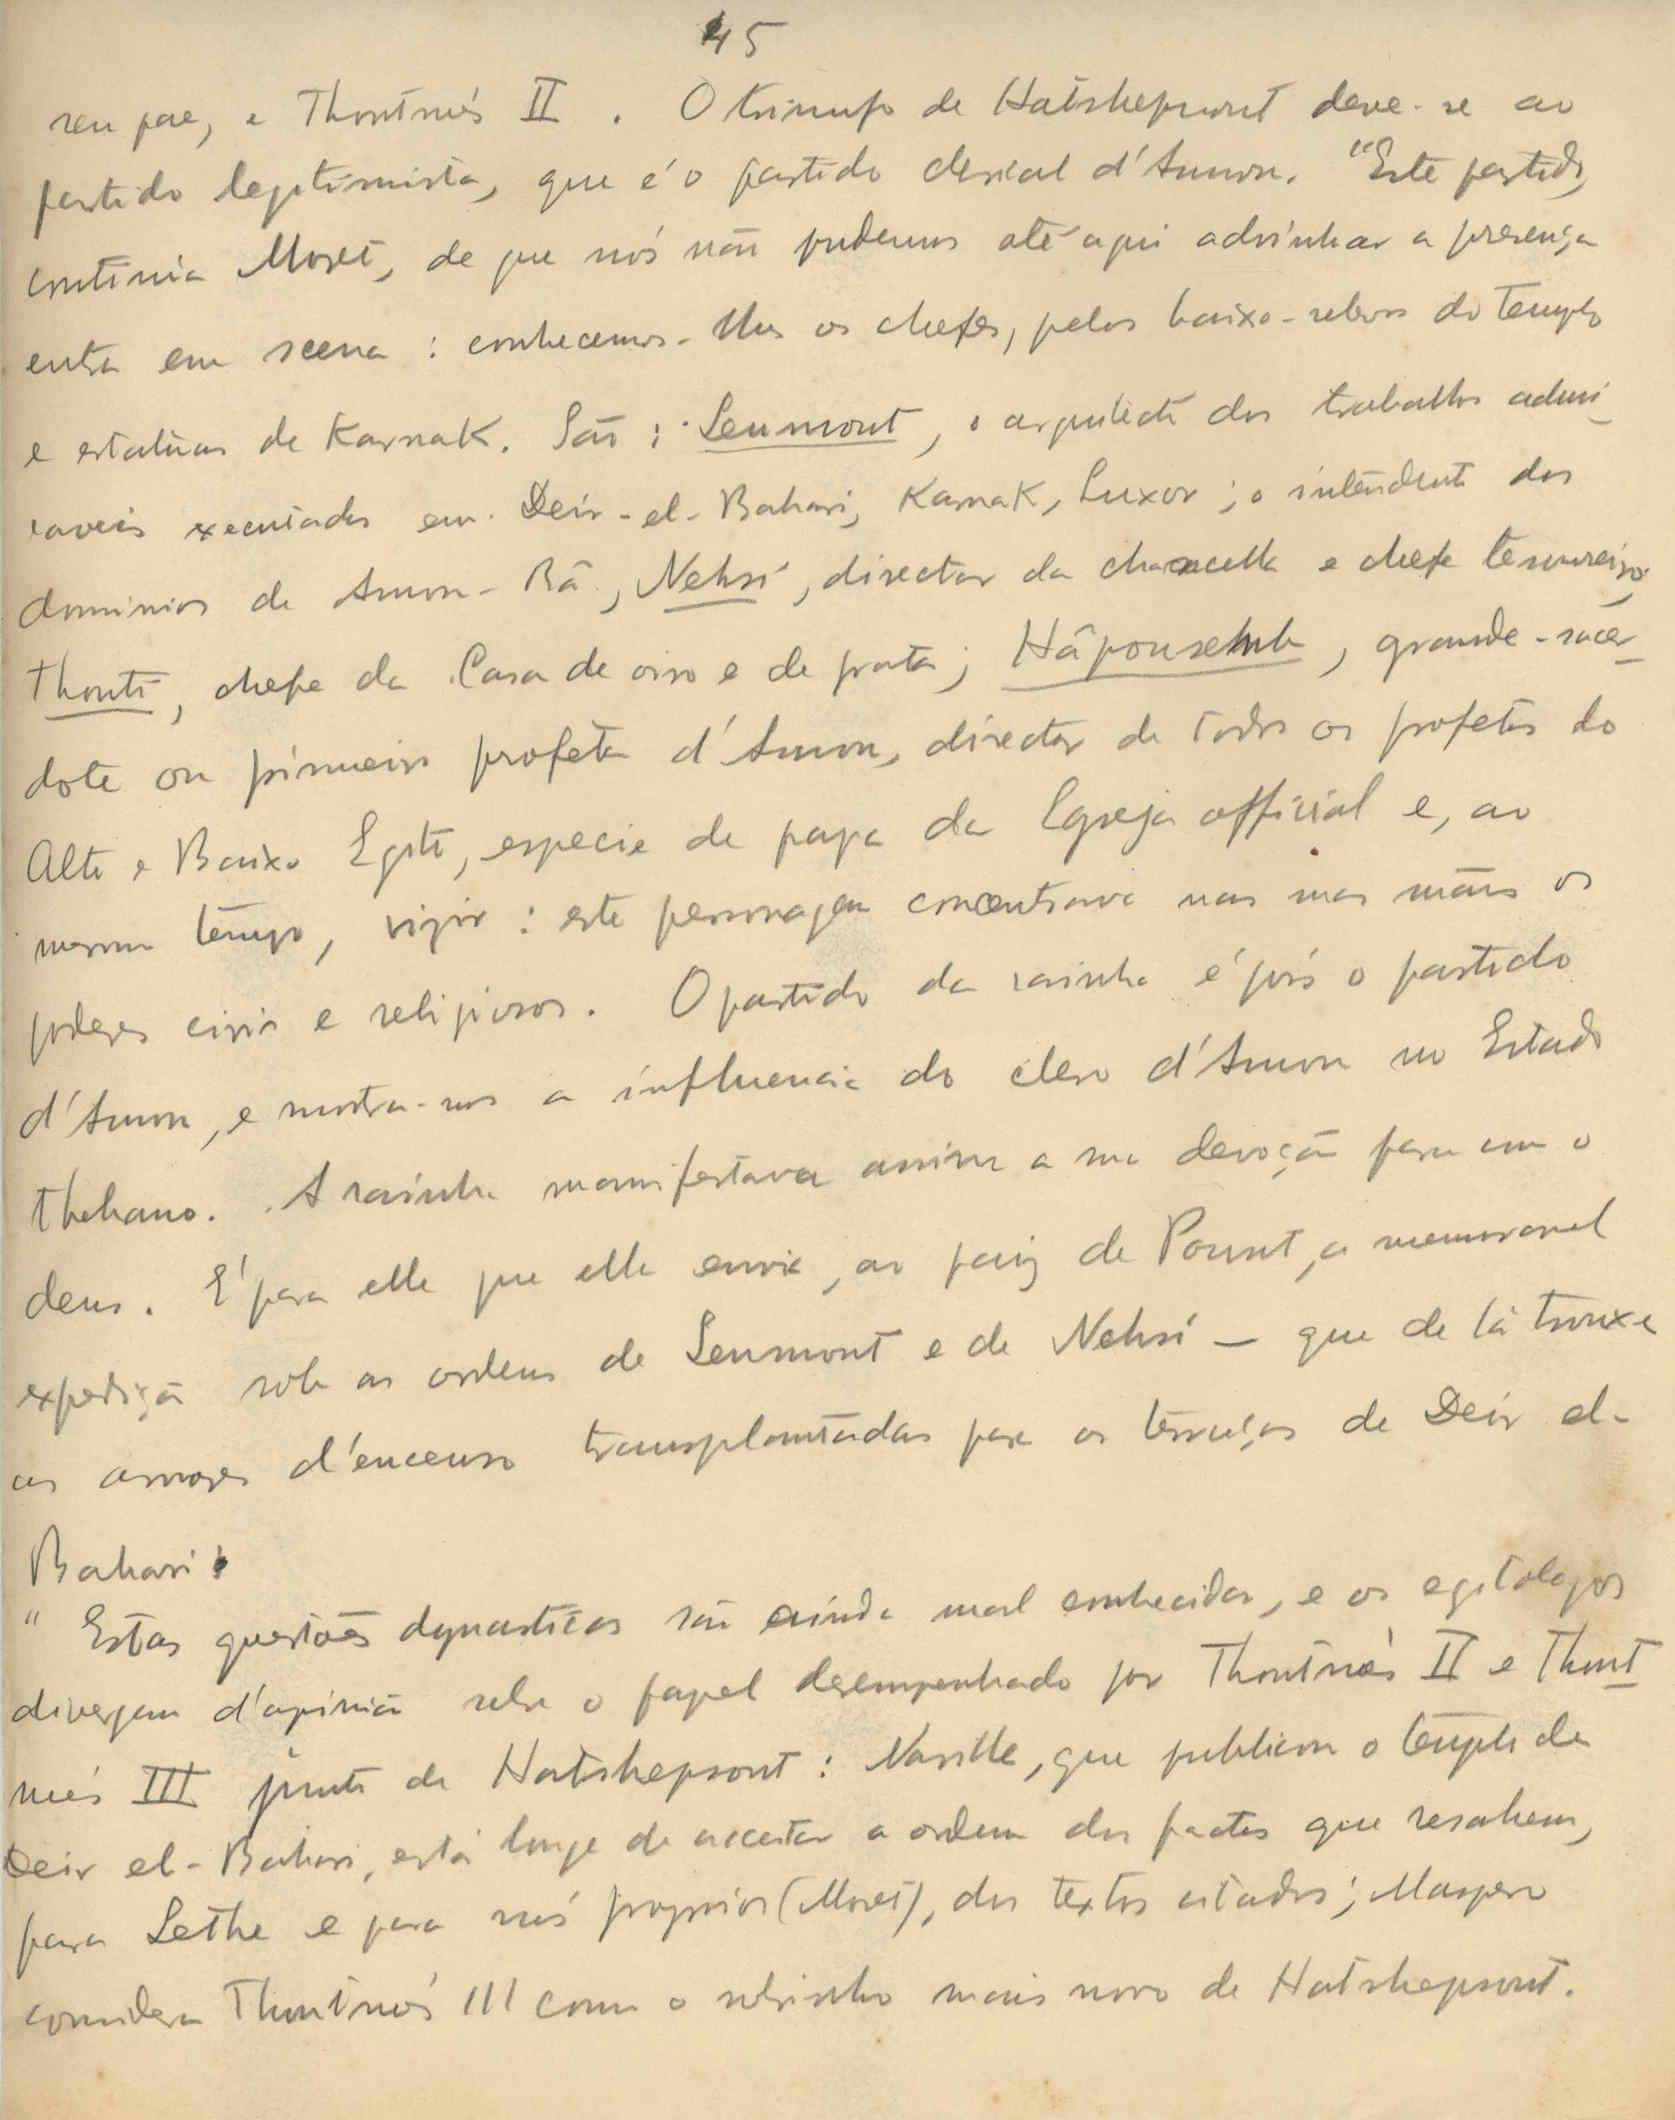 45
seu pae, e Thoutmés II. O triumfo de Hatshepsout deve-se ao
partido legitimista, que é o partido clerical d'Amon. "Este partido,
continúa Moret, de que nós não pudemos até aqui adivinhar a presença
entra em scena: conhecemos-lhes os chefes, pelos baixo-relevos do Templo
e estatuas de Karnak. São: Senmout, o arquitecto dos trabalhos admi-
raveis executados em Deir-el-Bahari, Karnak, Luxor; o intendente dos
dominios de Amon-Râ, Nehsi, director da chancella e chefe tesoureiro;
Thouti, chefe da Casa de oiro e de prata; Hâpousenb, grande-sacer-
dote ou primeiro profeta d'Amon, director de todos os profetas do
Alto e Baixo Egito, especie de papa da Egreja official e, ao
mesmo tempo, vizir: este personagem concentrava nas suas mãos os
poderes civis e religiosos. O partido da rainha é pois o partido
d'Amon, e mostra-nos a influencia do clero d'Amon no Estado
thebano. A rainha manifestava assim a sua devoção para com o
deus. E' para elle que ella envia, ao paiz de Pount, a memoravel
expedição sob as ordens de Senmout e de Nehsi — que de lá trouxe
as arvores d'encenso transplantadas para os terraços de Deir el-
Bahari.
" Estas questões dynasticas são ainda mal conhecidas, e os egitologos
divergem d'opinião sobre o papel desempenhado por Thoutmés II e Thout-
més III junto de Hatshepsout: Naville, que publicou o templo de
Deir el-Bahari, está longe de acceitar a ordem dos factos que resaltam,
para Sethe e para nós proprios (Moret), dos textos citados; Maspero
considera Thoutmós III como o sobrinho mais novo de Hatshepsout.